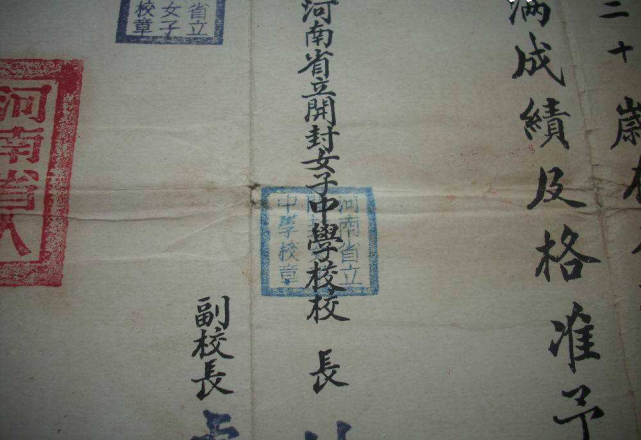 二十歲
滿成績及格准予
河南省立開封女子中學校校長
副校長
河南省立
中學校章
省立
女子
校章
河南省人